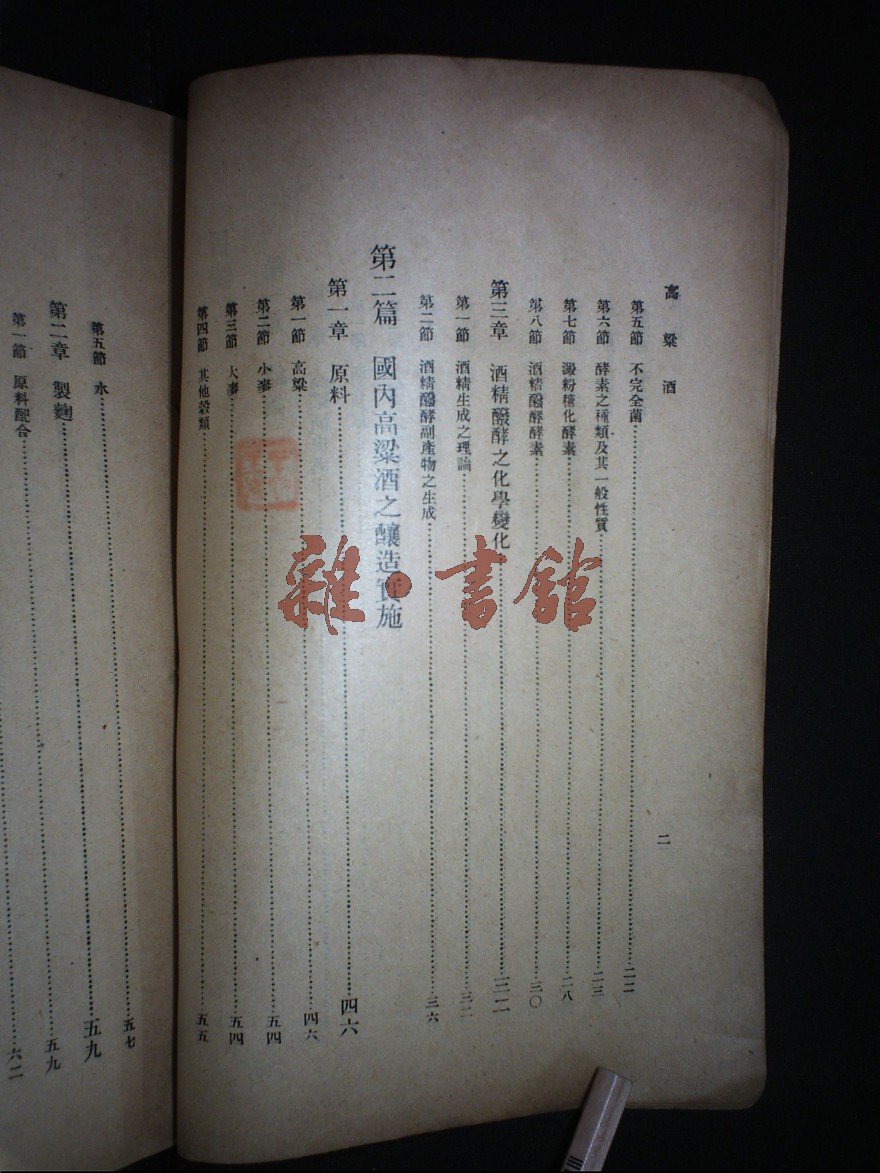 高粱酒
二
第五節 不完全菌 二二
第六節 酵素之種類及其一般性質 二三
第七節 澱粉糖化酵素 二八
第八節 酒精醱酵酵素 三〇
第三章 酒精醱酵之化學變化 三二
第一節 酒精生成之理論 三二
第二節 酒精醱酵副產物之生成 三六
第二篇 國內高粱酒之釀造實施
第一章 原料 四六
第一節 高粱 四六
第二節 小麥 五四
第三節 大麥 五四
第四節 其他穀類 五五
第五節 水 五七
第二章 製麴 五九
五九
第一節 原料配合 六二
雜·書館